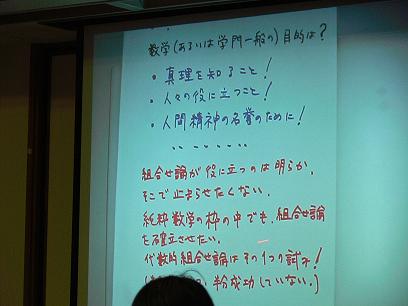 数学(あるいは学門一般の)目的は?
・真理を知ること!
・人々の役に立つこと!
・人間精神の名誉のために!
‥ ‥‥‥
組合せ論が役に立つのは明らか.
そこで止まらせたくない.
純粋数学の枠の中でも、組合せ論
を確立させたい.
代数的組合せ論はその1つの試み!
成功していない.)